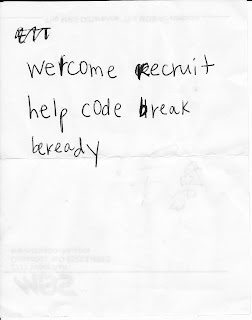 welcome recruit
help code break
beready